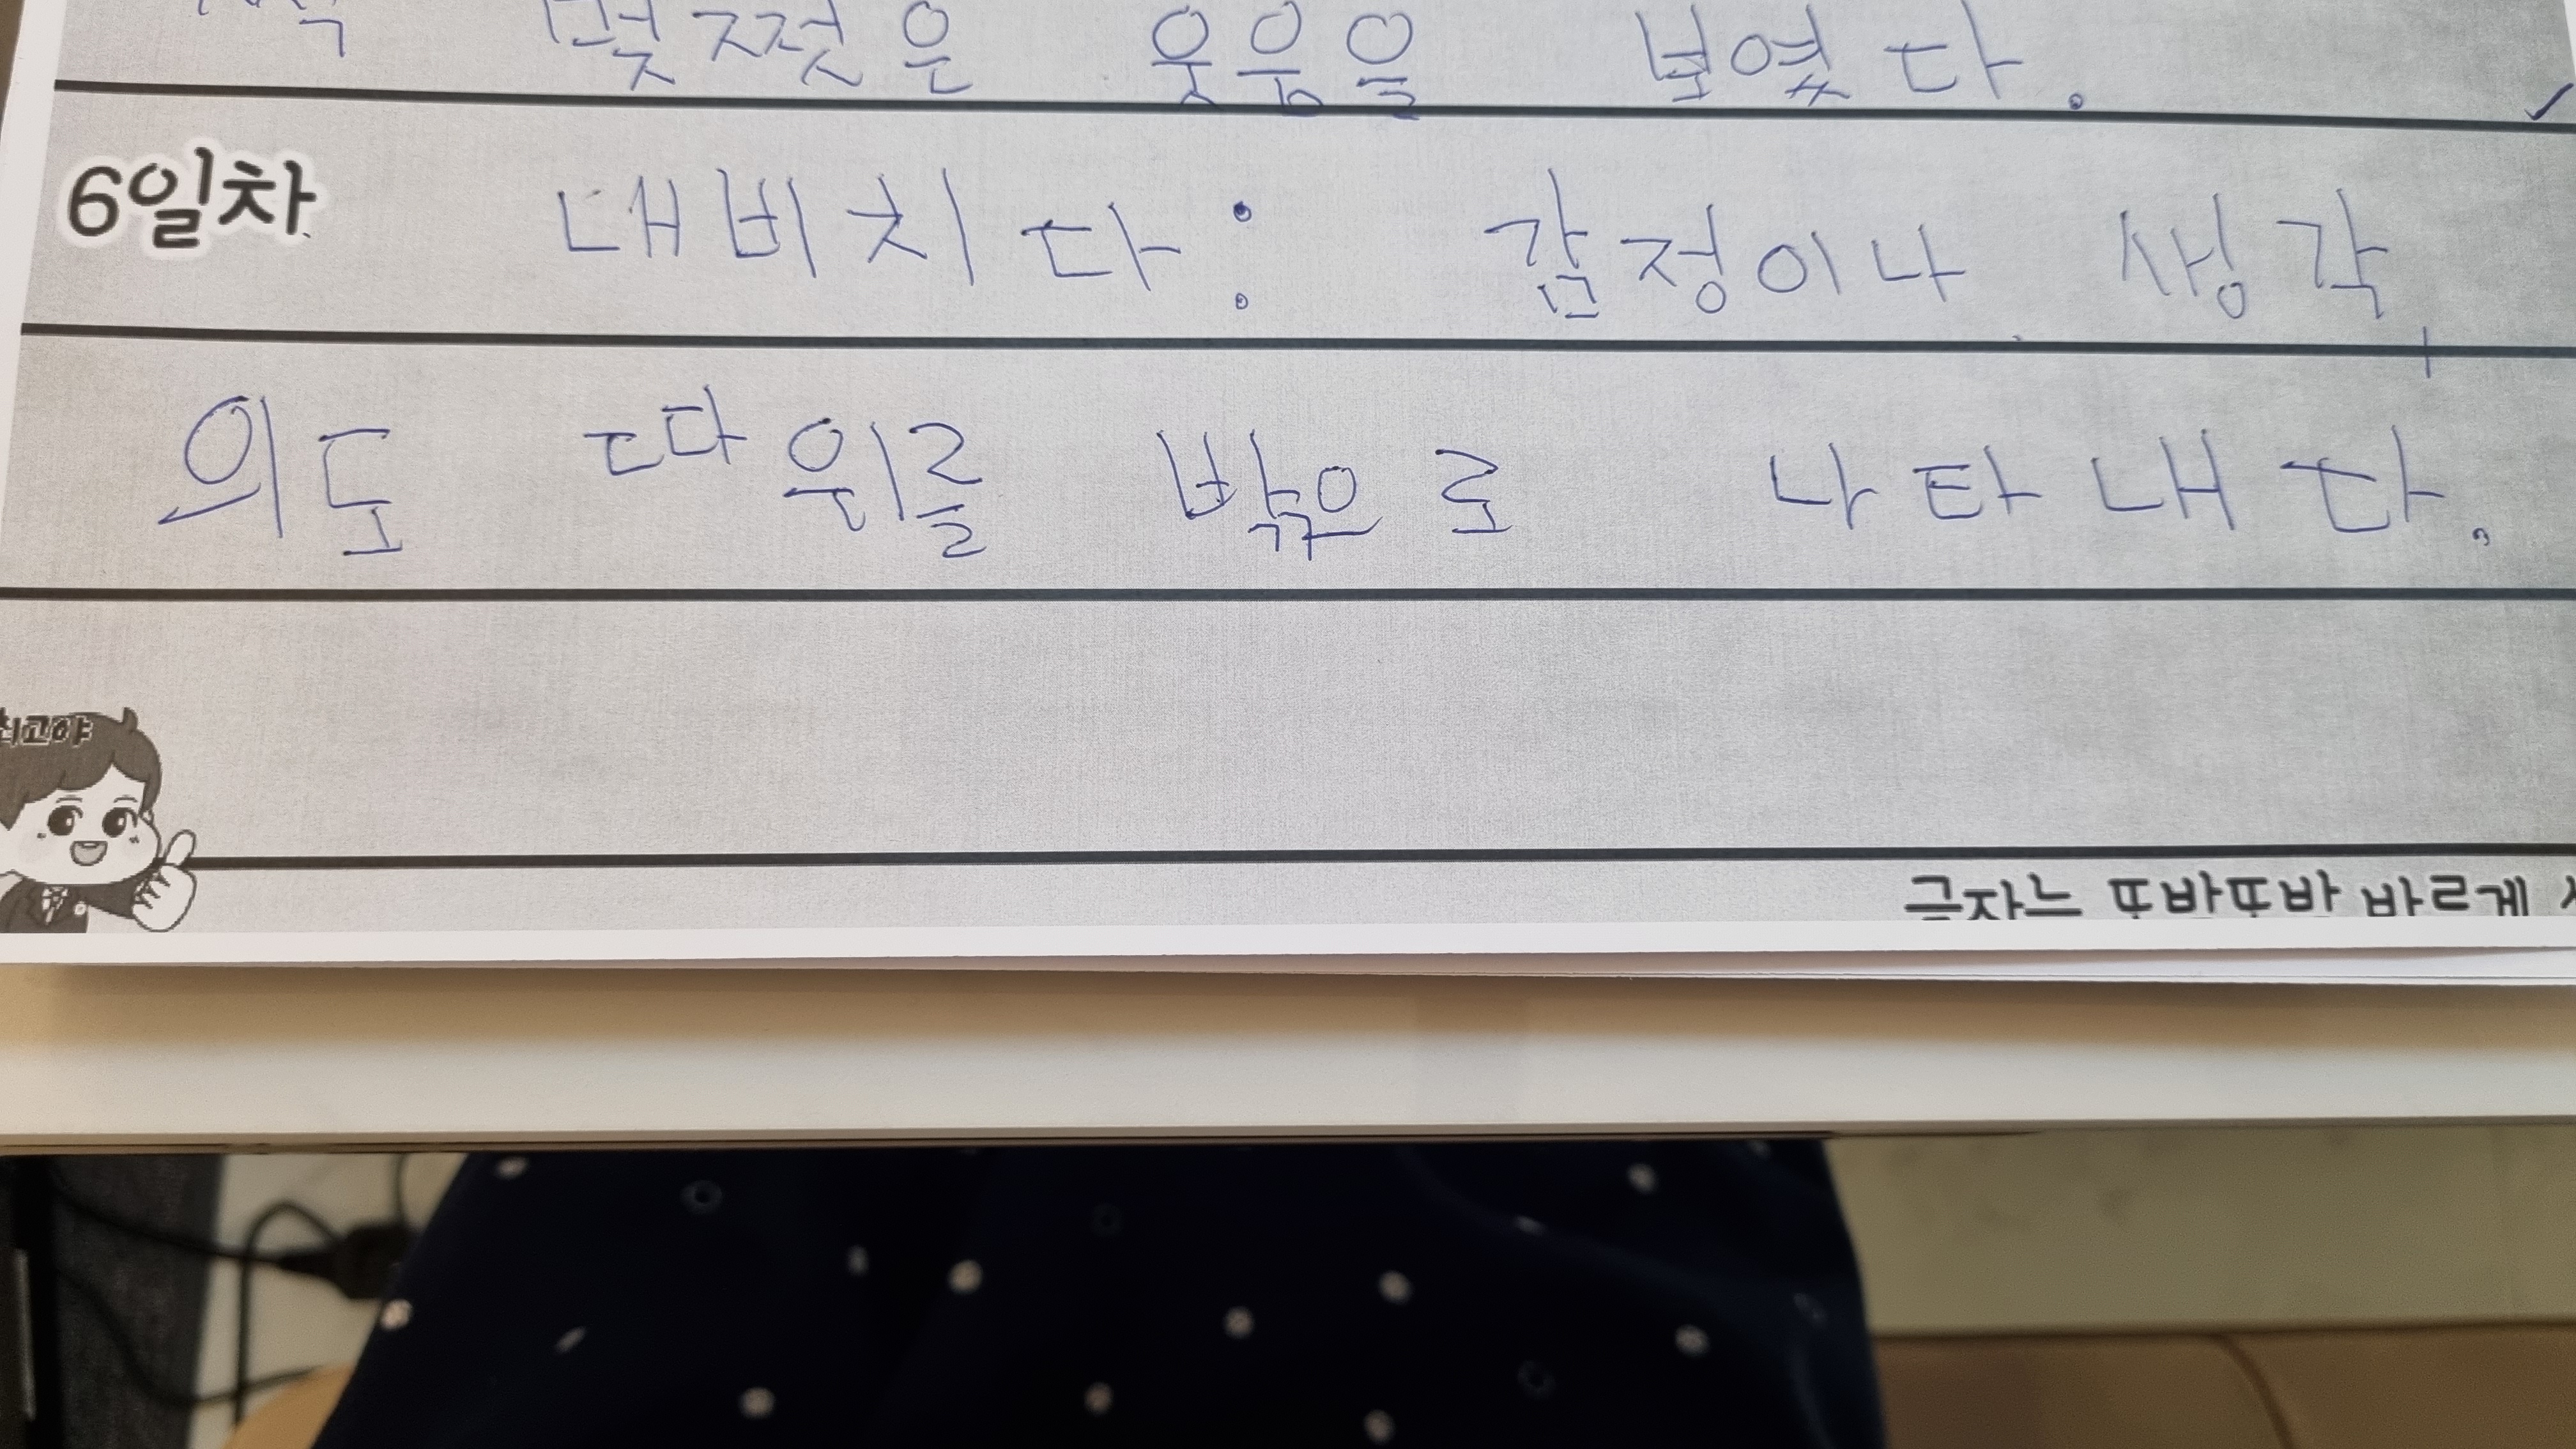 멋쩟은 웃음을 보였다.
6일차 내비치다: 감정이나 생각,
의도 따위를 밖으로 나타내다.
최고야
글자는 또박또박 바르게